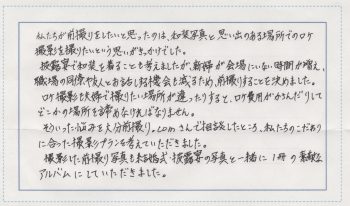 私たちが前撮りをしたいと思ったのは、和装写真と思い出のある場所でのロケ
撮影を撮りたいという思いがきっかけでした。
披露宴で和装を着ることも考えましたが、新婦が会場にいない時間が増え、
職場の同僚や友人とお話しする機会も減るため、前撮りすることを決めました。
ロケ撮影も夫婦で撮りたい場所が違ったりすると、ロケ費用がかさんだりして
どこかの場所を諦めなければなりません。
そういった悩みを大分前撮り.comさんで相談したところ、私たちのこだわり
に合った撮影プランを考えていただきました。
撮影した前撮り写真も結婚式・披露宴の写真と一緒に1冊の素敵な
アルバムにしていただきました。